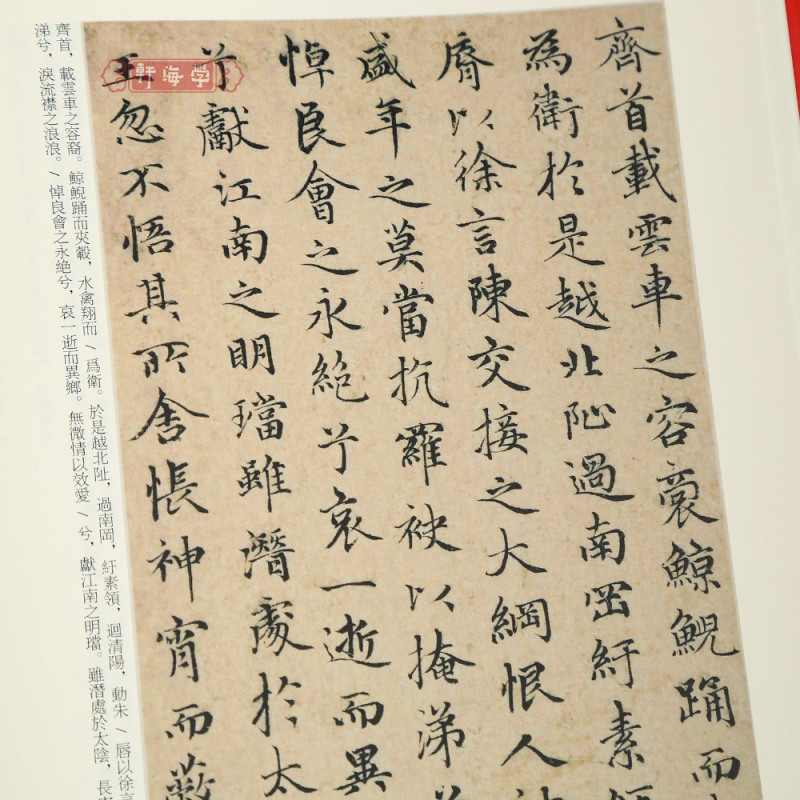 齊首載雲車之容裔鯨鯢踊而
為衛於是越北阯過南岡紆素領
脣以徐言陳交接之大綱恨人神
盛年之莫當抗羅袂以掩涕
悼良會之永絕兮哀一逝而異
兮獻江南之明璫雖潛處於太
王忽不悟其所舍悵神宵而蔽
学海軒
齊首,載雲車之容裔。鯨鯢踊而夾轂,水禽翔而/爲衛。於是越北阯,過南岡,紆素領,迴清陽,動朱/脣以徐言
涕兮,淚流襟之浪浪。/悼良會之永絕兮,哀一逝而異鄉。無微情以效愛/兮,獻江南之明璫。雖潛處於太陰,長